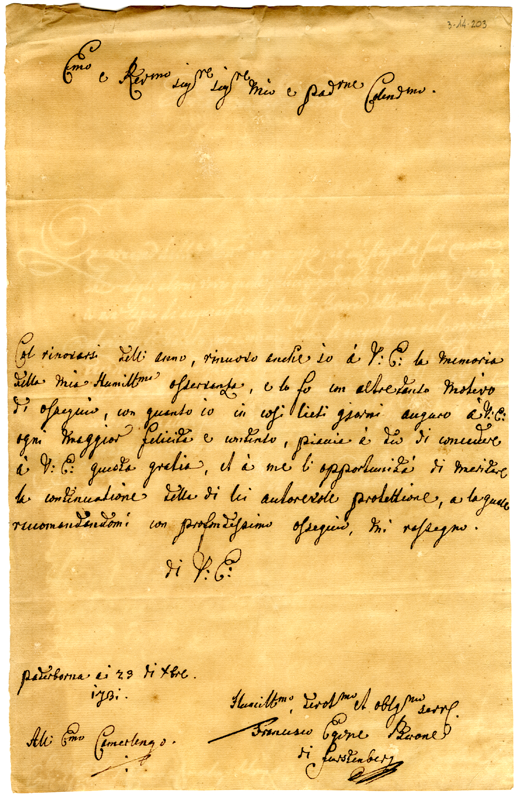 3-14 203
Emo e Revmo sigre sigre mio e padrne Colendmo.
Col rinovarsi dell: anno, rinuovo anche io à V: E: la memoria
della mia Humillma osservanza, e lo fo con altretanto motivo
di ossequio, con quanto io in così lieti giorni auguro à V: E:
ogni maggior felicità e contento, piacia à dio di concedere
à V: E: questa gratia, et à me l: opportunità di meritare
la continuatione della di lei autorevole protettione, a la quale
recomandandomi con profondissimo ossequio, mi rassegno.
di V: E:
paderborna ai 23 di Xbre.
1731.
Humillmo, devotmo et oblgmo serre
Francesco Egone Barone
All: Emo Camerlengo.
di furstenberg